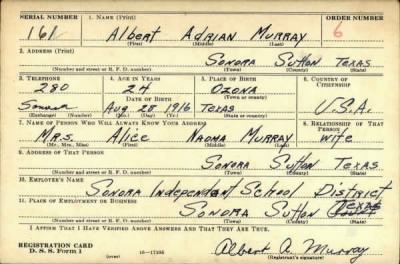 SERIAL NUMBER 1. NAME (Print) ORDER NUMBER
161 Albert Adrian Murray 6
(First) (Middle) (Last)
2. ADDRESS (Print)
Sonora Sutton Texas
(Number and street or R. F. D. number) (Town) (County) (State)
3. TELEPHONE 4. AGE IN YEARS 5. PLACE OF BIRTH 6. COUNTRY OF CITIZENSHIP
280 24 Ozona
DATE OF BIRTH (Town or county)
Sonora Aug 28 1916 Texas U.S.A.
(Exchange) (Number) (Mo.) (Day) (Yr.) (State or country)
7. NAME OF PERSON WHO WILL ALWAYS KNOW YOUR ADDRESS 8. RELATIONSHIP OF THAT PERSON
Mrs. Alice Naoma Murray wife
(Mr., Mrs., Miss) (First) (Middle) (Last)
9. ADDRESS OF THAT PERSON
Sonora Sutton Texas
(Number and street or R. F. D. number) (Town) (County) (State)
10. EMPLOYER'S NAME
Sonora Independent School District
11. PLACE OF EMPLOYMENT OR BUSINESS
Sonora Sutton Texas
(Number and street or R. F. D. number) (Town) (County) (State)
I AFFIRM THAT I HAVE VERIFIED ABOVE ANSWERS AND THAT THEY ARE TRUE.
REGISTRATION CARD
D. S. S. Form 1 (over) 16—17105 Albert A. Murray
(Registrant's signature)